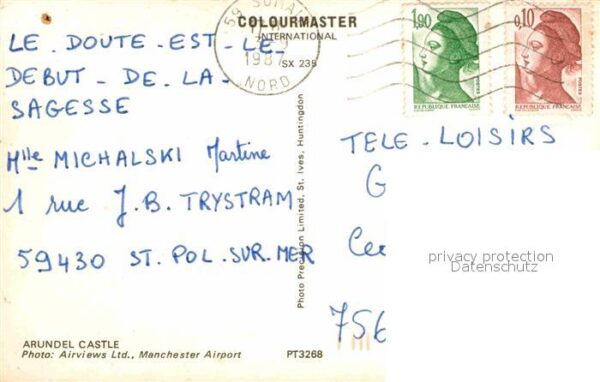 COLOURMASTER
INTERNATIONAL
SX 235
59 SOMAIN
198
NORD
1,80
POSTES
REPUBLIQUE FRANÇAISE
0,10
POSTES
REPUBLIQUE FRANÇAISE
LE . DOUTE - EST - LE -
DEBUT - DE - LA -
SAGESSE
Mlle MICHALSKI Martine
1 rue J.B. TRYSTRAM
59430 ST. POL. SUR. MER
Photo Precision Limited, St. Ives, Huntingdon
TELE - LOISIRS
G
Ce
756
privacy protection
Datenschutz
ARUNDEL CASTLE
Photo: Airviews Ltd., Manchester Airport
PT3268